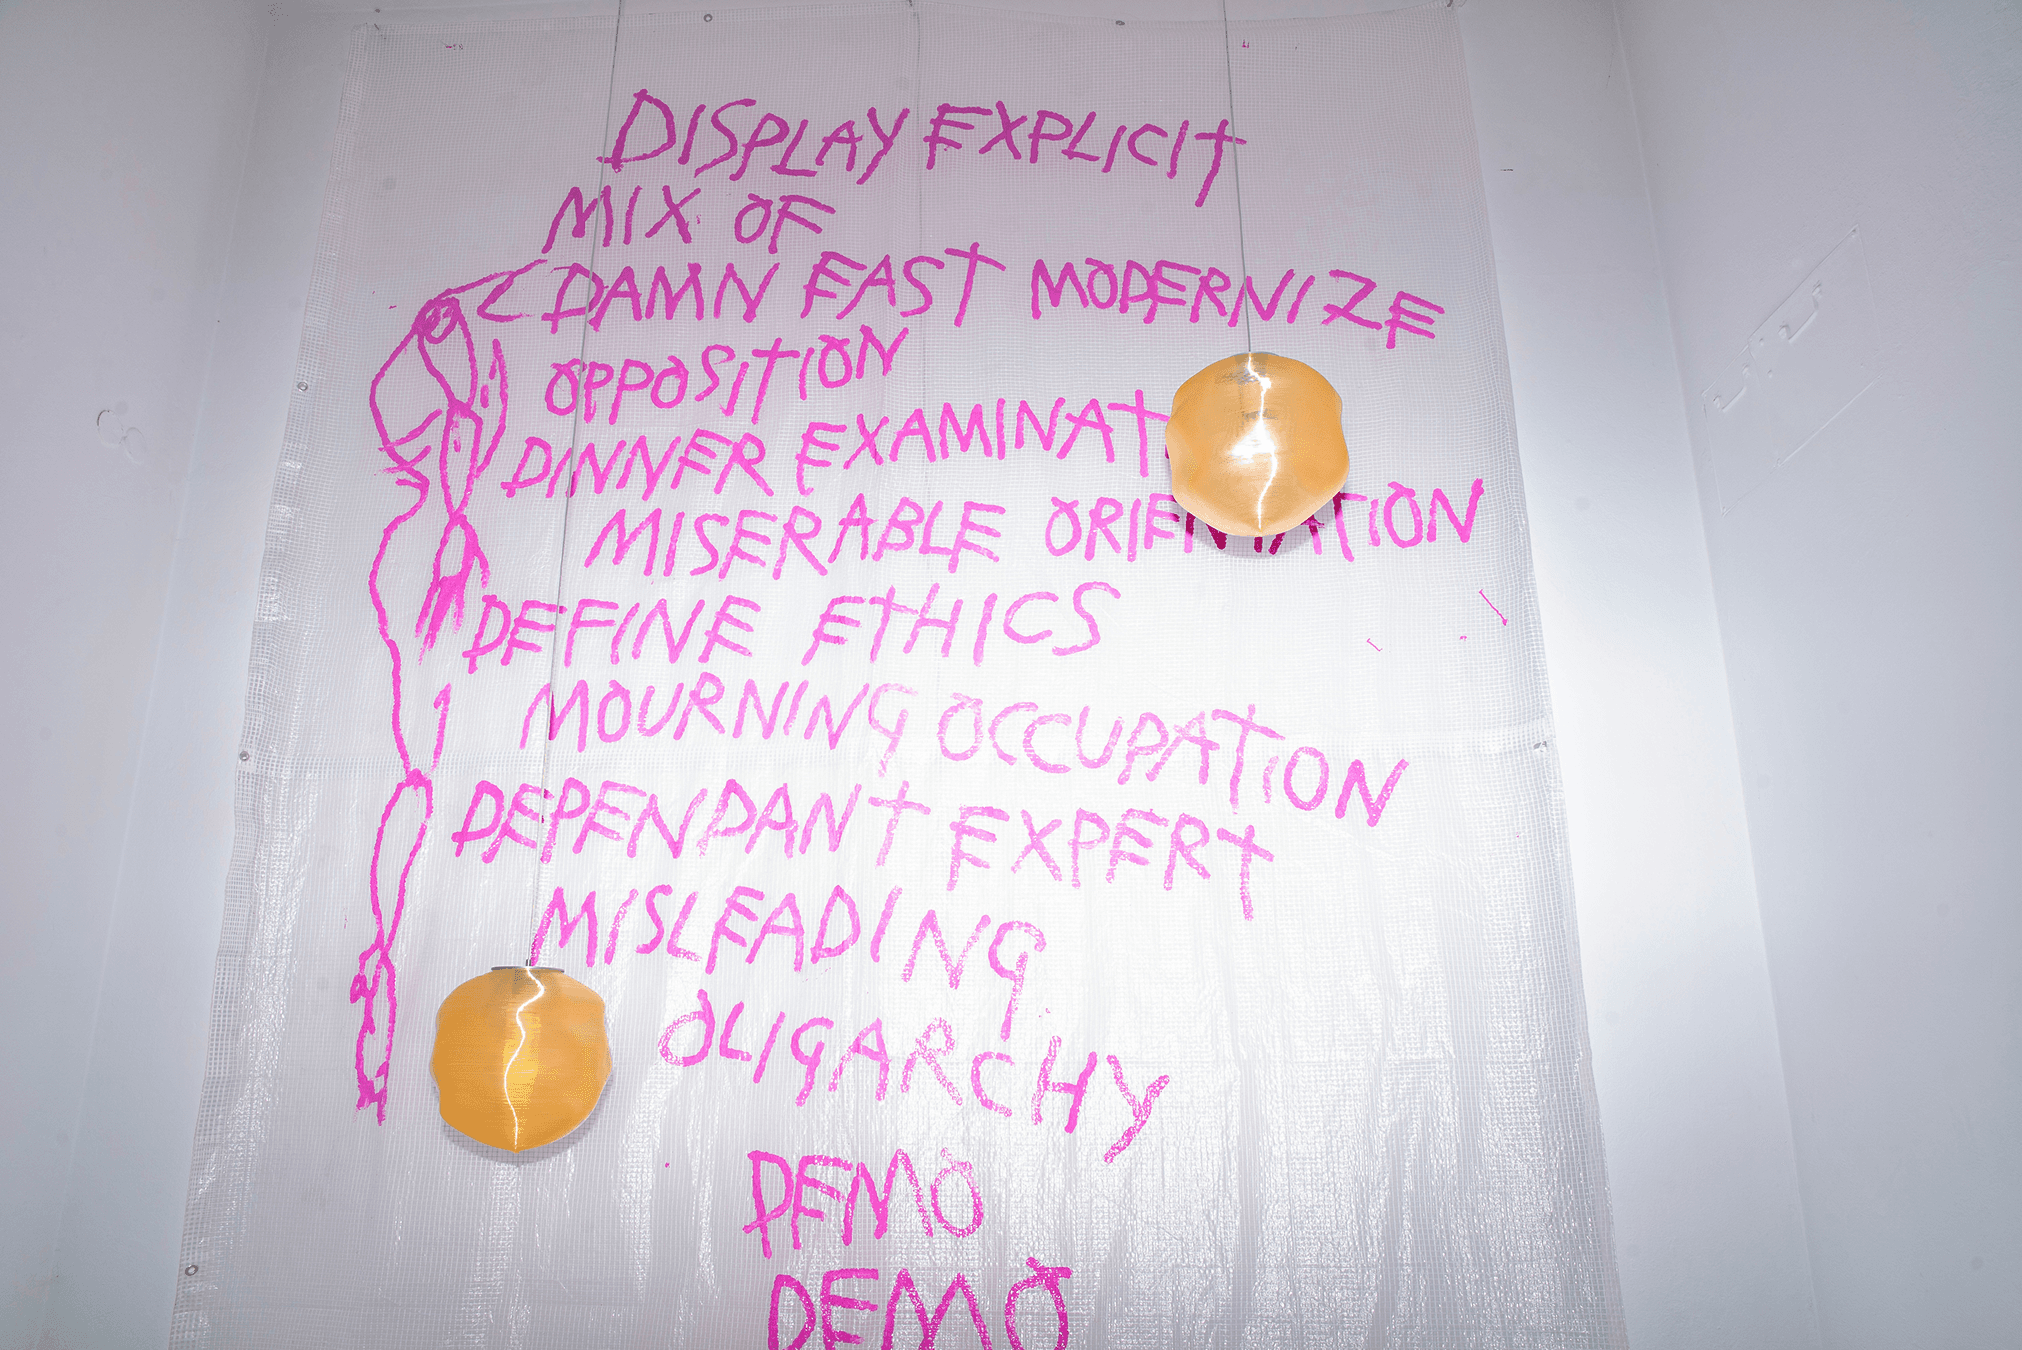 DISPLAY EXPLICIT
MIX OF
DAMN EAST MODERNIZE
OPPOSITION
DINNER EXAMINAT
MISERABLE ORIENTATION
DEFINE ETHICS
MOURNING OCCUPATION
DEPENDANT EXPERT
MISLEADING
OLIGARCHY
DEMO
DEMO